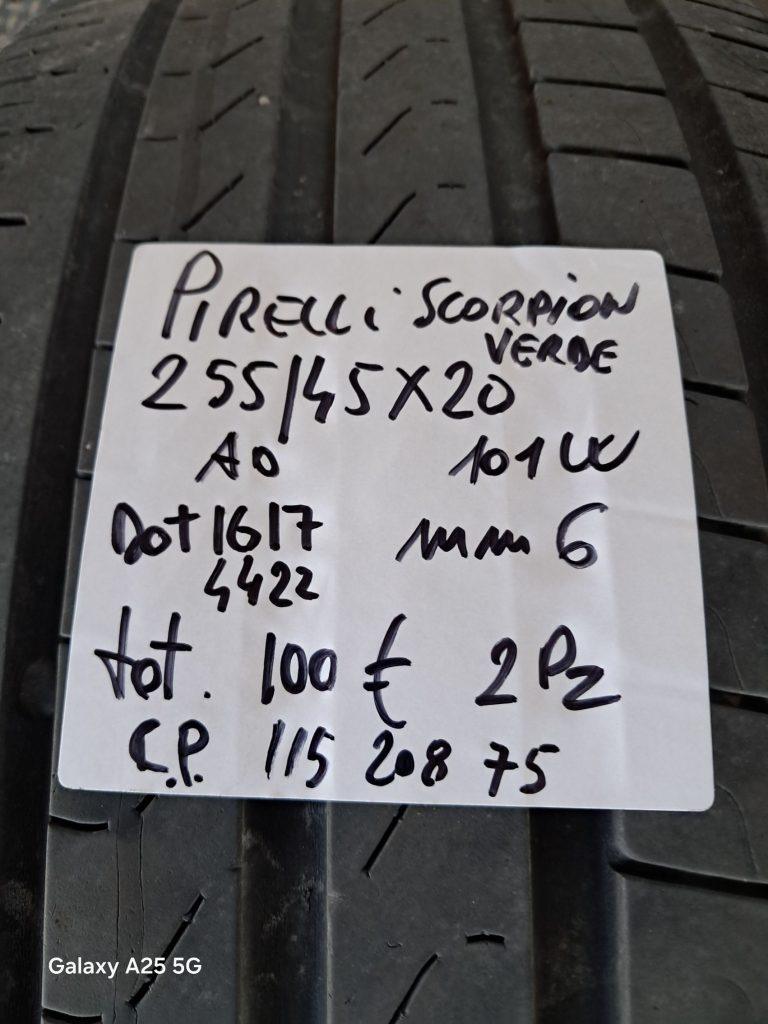 PIRELLI SCORPION
VERDE
255/45X20
AO 101W
Dot 1617 mm 6
4422
tot. 100 € 2 Pz
C.P. 115 208 75
Galaxy A25 5G